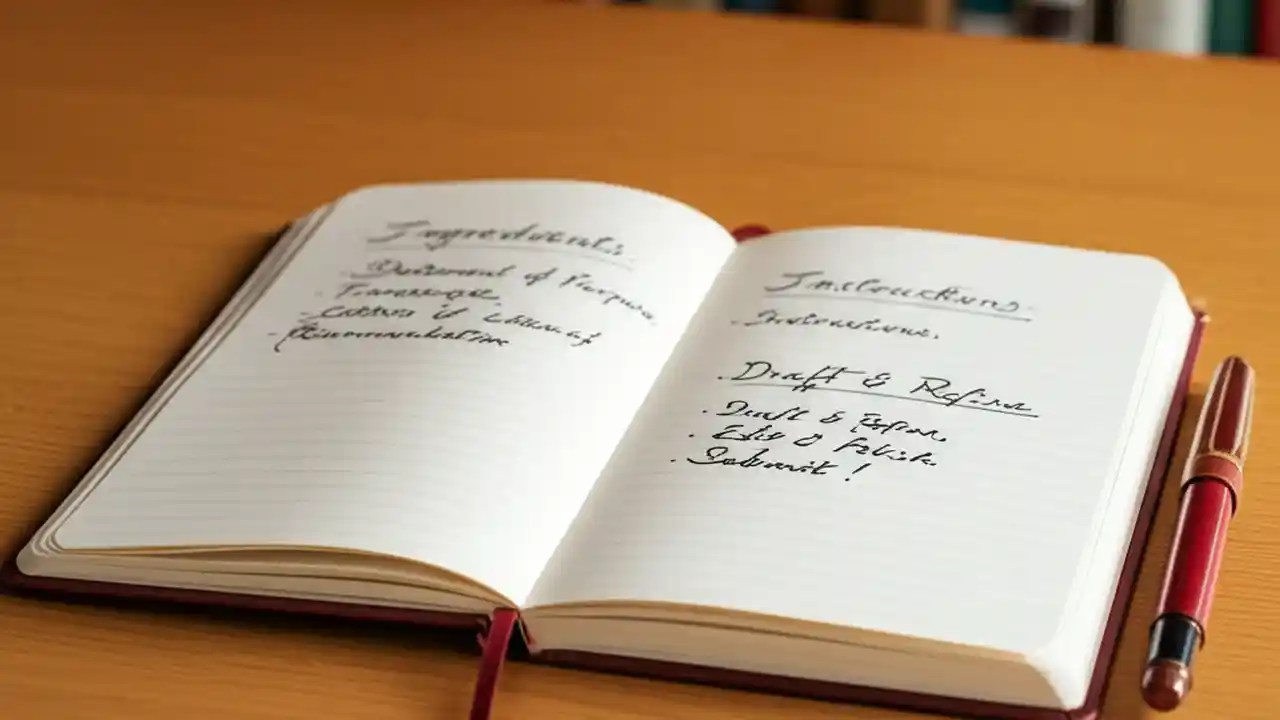 Ingredients.
- Statement of Purpose
- Transcript,
- Letter of
- Recommendation
Instructions.
Draft & Refine
. Draft & Refine.
. Edit & Polish.
. Submit!